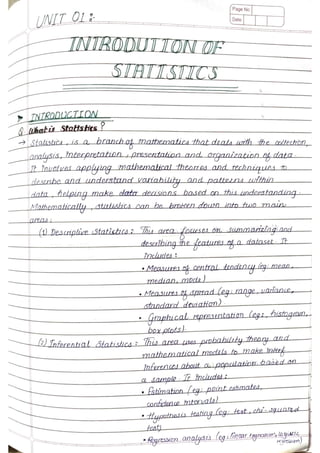 Page No.
Date
UNIT 01 :-
INTRODUTION OF
STATISTICS
INTRODUCTION
Q What is Statistics ?
→ Statistics , is a branch of mathematics that deals with the collection,
analysis, Interpretation , presentation and organization of data.
It Involves applying mathematical theories and techniques to
describe and understand variability and patterns within
data , helping make data decisions based on this understanding.
Mathematically , statistics can be broken down into two main
areas :
(1) Descriptive Statistics : This area focuses on summarizing and
describing the features of a dataset. It
Includes :
• Measures of central tendency (eg. mean,
median, mode)
• Measures of spread (eg. range, variance,
standard deviation)
• Graphical representation (eg., histogram,
box plots)
(2) Inferential Statistics : This area uses probability theory and
mathematical models to make
Inferences about a population based on
a sample It Includes :
• Estimation (eg. point estimates,
confidence Intervals)
• Hypothesis testing (eg. t-test, chi-squared
test)
• Regression analysis (eg. linear regression, logistic
regression)